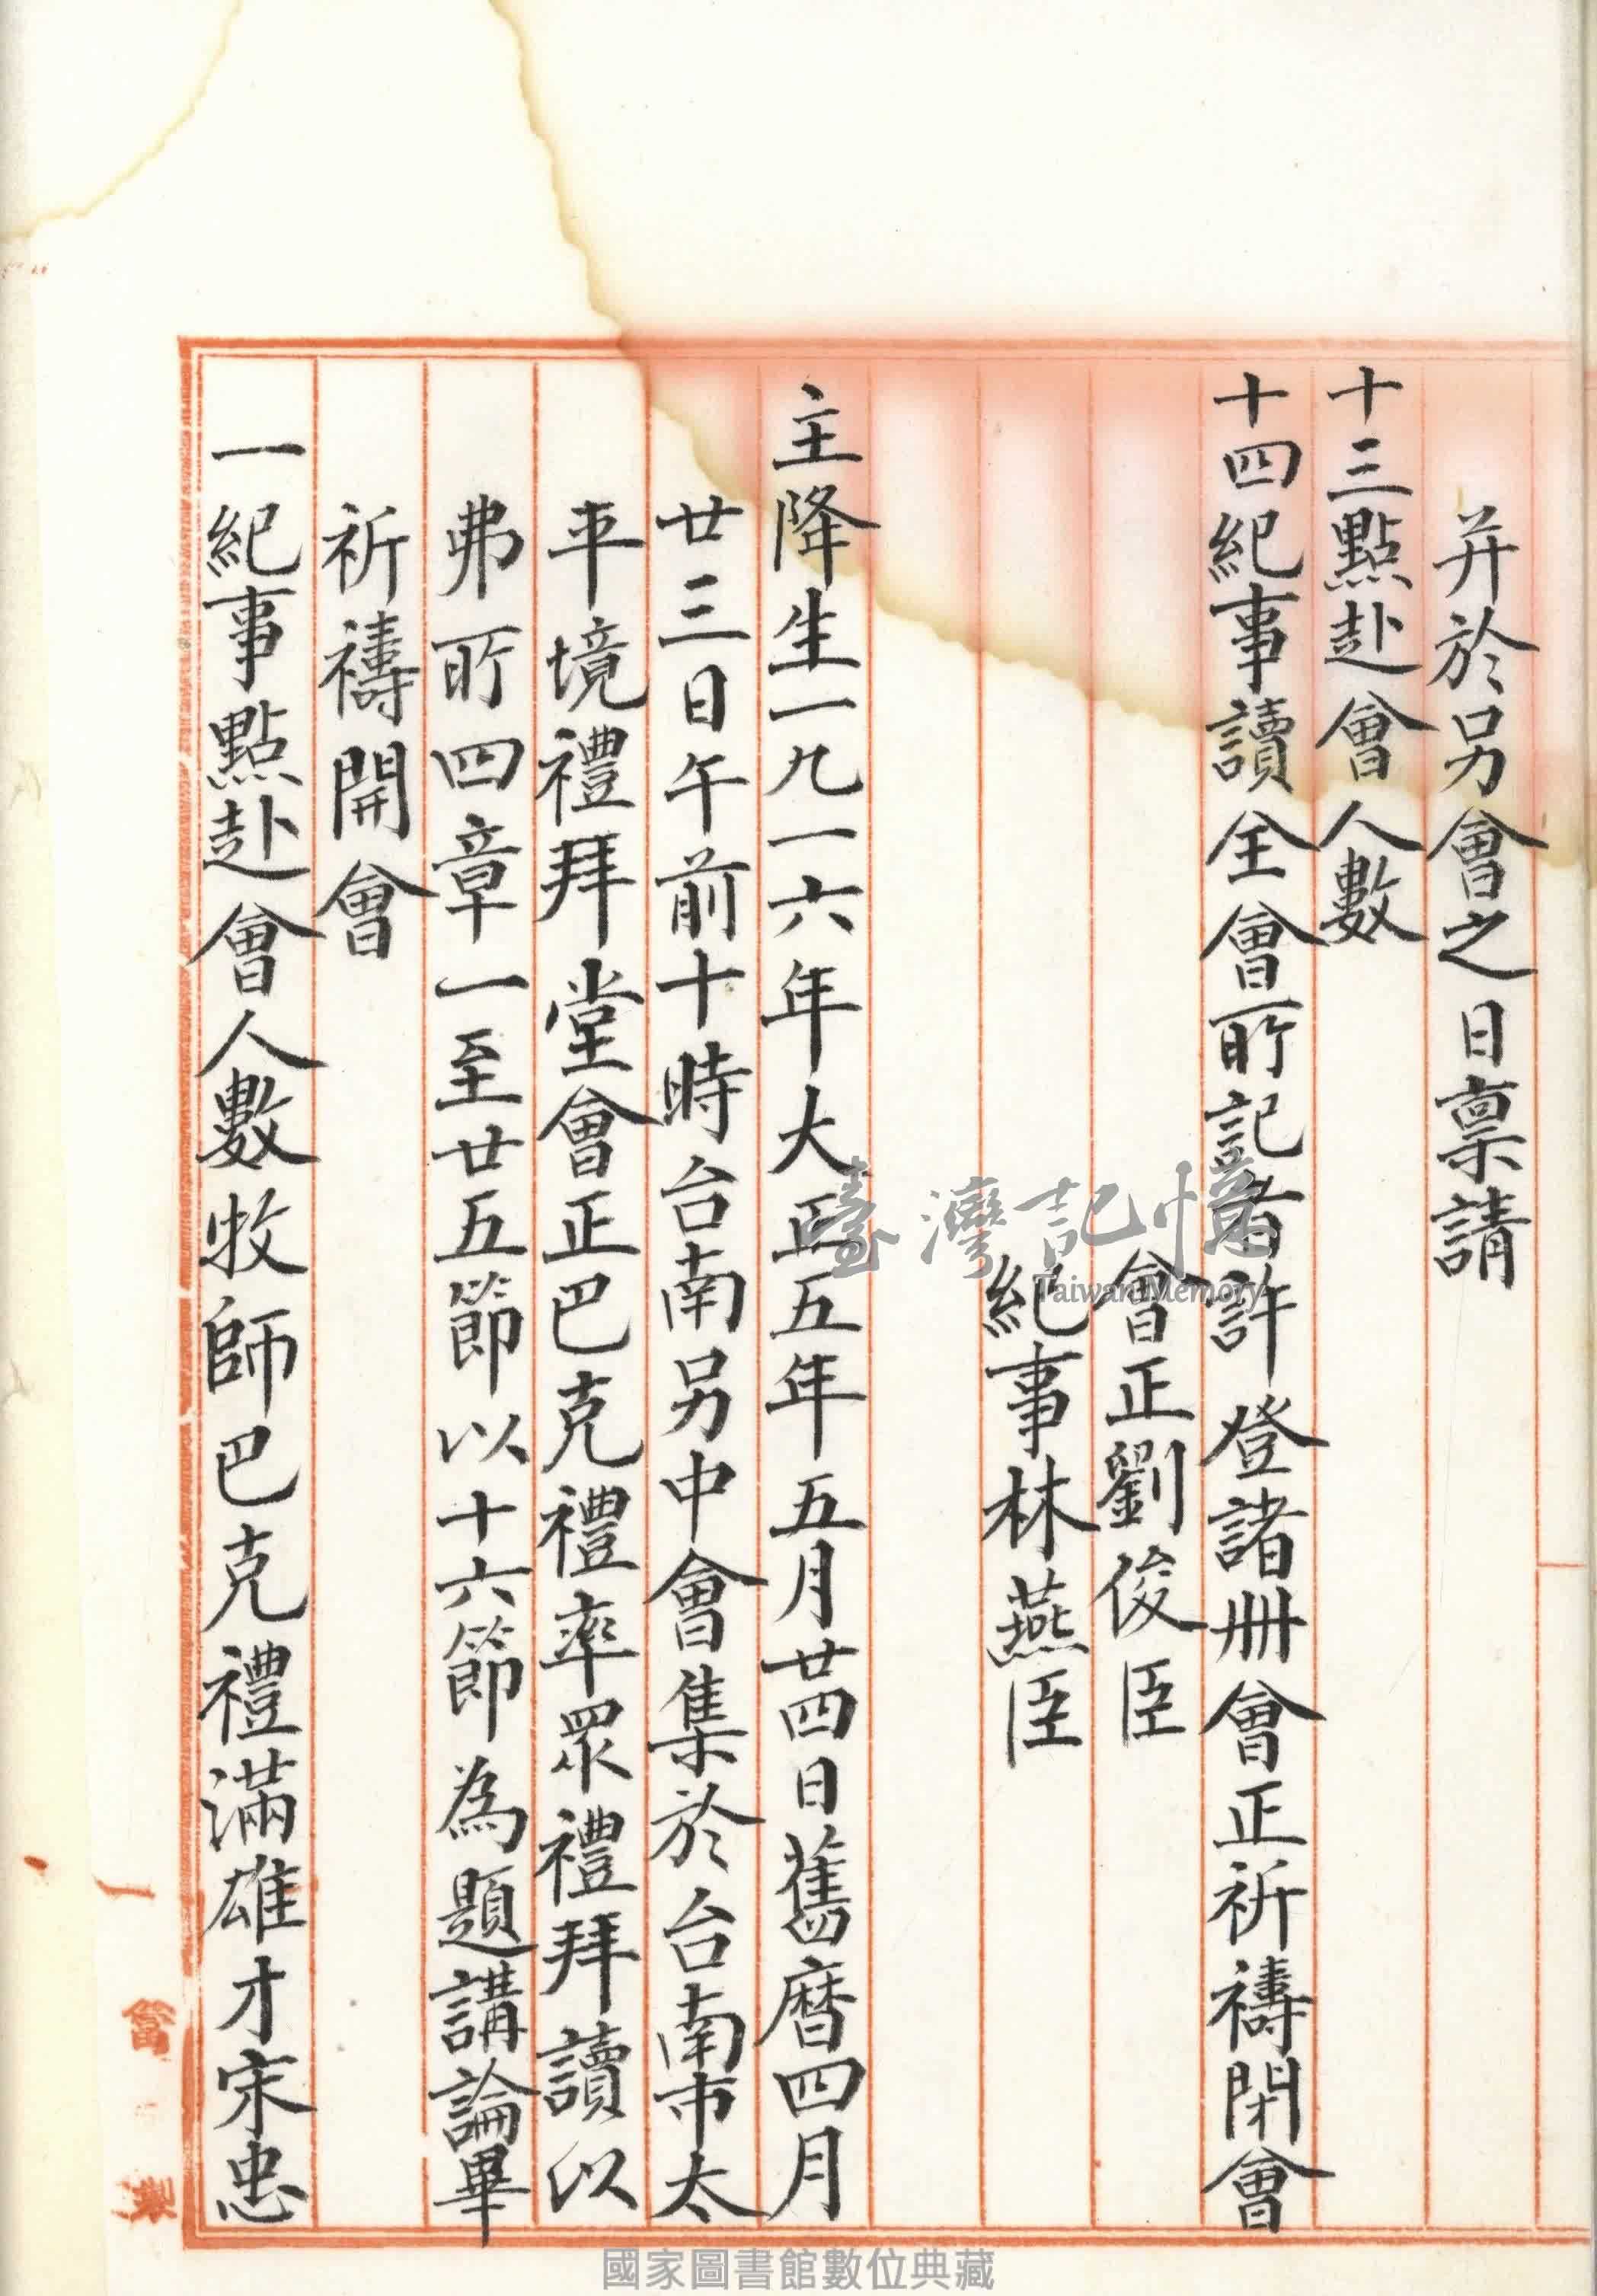 并於另會之日禀請
十三點赴會人數
十四紀事讀全會所記者許登諸册會正祈禱閉會
會正劉俊臣
紀事林燕臣
主降生一九一六年大正五年五月廿四日舊曆四月
廿三日午前十時台南另中會集於台南市太
平境禮拜堂會正巴克禮率眾禮拜讀以
弗所四章一至廿五節以十六節為題講論畢
祈禱開會
一紀事點赴會人數牧師巴克禮滿雄才宋忠
臺灣記憶
Taiwan Memory
國家圖書館數位典藏